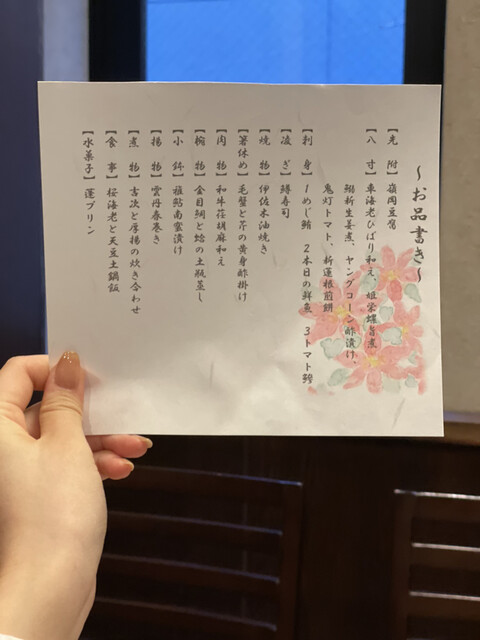 ～お品書き～
【先附】嶺岡豆腐
【八寸】車海老ひばり和え、姫栄螺旨煮
鰯新生姜煮、ヤングコーン酢漬け、
鬼灯トマト、新蓮根煎餅
【刺身】1めじ鮪 2本日の鮮魚 3トマト鰺
【凌ぎ】鱒寿司
【焼物】伊佐木油焼き
【箸休め】毛蟹と芹の黄身酢掛け
【肉物】和牛荏胡麻和え
【椀物】金目鯛と蛤の土瓶蒸し
【小鉢】稚鮎南蛮漬け
【揚物】雲丹春巻き
【煮物】吉次と厚揚の炊き合わせ
【食事】桜海老と天豆土鍋飯
【水菓子】蓮プリン